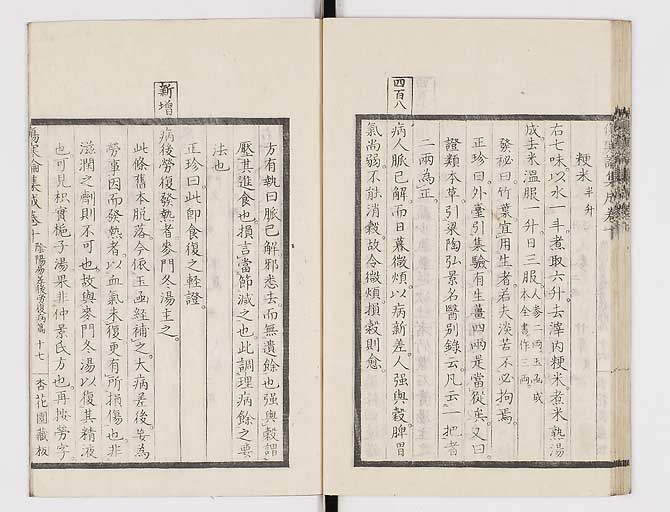 粳米半升
右七味以水一斗煮取六升去滓内粳米煮米熟湯
成去米溫服一升日三服人參二兩玉函成本全書作三兩
發祕曰竹葉宜用生者若夫淡苦不必拘焉
正珍曰外臺引集驗有生薑四兩是當從矣又曰
證類本草引梁陶弘景名醫別錄云凡云一把者
二兩為正
四百八
病人脈已解而日暮微煩以病新差人强與穀脾胃
氣尚弱不能消穀故令微煩損穀則愈
方有執曰脈已解邪悉去而無遺餘也强與穀謂
壓其進食也損言當節減之也此調理病餘之要
法也
正珍曰此即食復之輕證
新增
病後勞復發熱者麥門冬湯主之
此條舊本脫落今依玉函經補之大病差後妄為
勞事因而發熱者以血氣未復更有所損傷也非
滋潤之劑則不可也故與麥門冬湯以復其精液
也可見枳實梔子湯果非仲景氏方也再按勞字
傷寒論集成卷十 陰陽易差後勞復病篇 十七 杏花園藏板